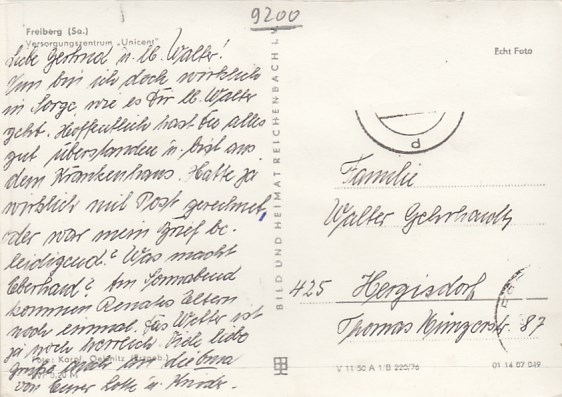 9200
Freiberg (Sa.)
Versorgungszentrum „Unicent"
Liebe Gertrud u. lb. Walter!
Nun bin ich doch wirklich
in Sorge wie es Dir lb. Walter
geht. Hoffentlich hast Du alles
gut überstanden u. bist aus
dem Krankenhaus. Hatte ja
wirklich mit Post gerechnet,
oder war mein Brief be-
leidigend? Was macht
Eberhard? Am Sonnabend
kommen Renates Eltern
noch einmal. Das Wetter ist
ja noch herrlich. Viele liebe
Grüße auch an die Oma
von Eurer Lotte u. Kinder.
Foto: Karpf, Oelsnitz (Erzgeb.)
BILD UND HEIMAT REICHENBACH I. V.
Echt Foto
Familie
Walter Gehrhardt
425 Hergisdorf
Thomas Münzerstr. 87
V 11 50 A 1/B 220/76
01 14 07 049